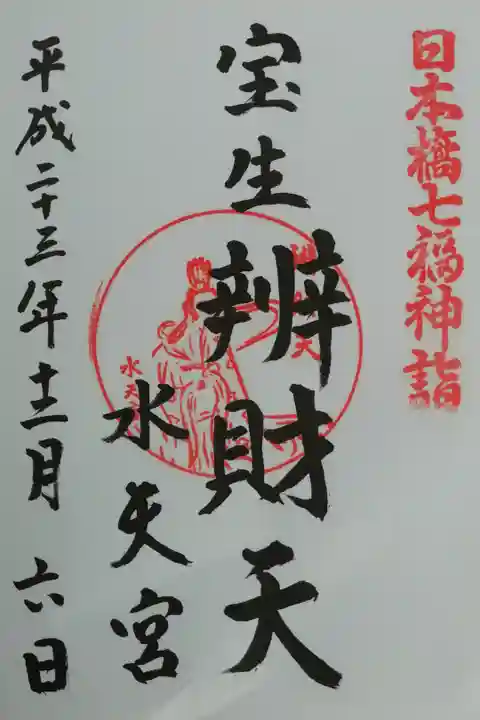 日本橋七福神詣
宝生辨財天
水天宮
平成二十三年十二月六日
水天